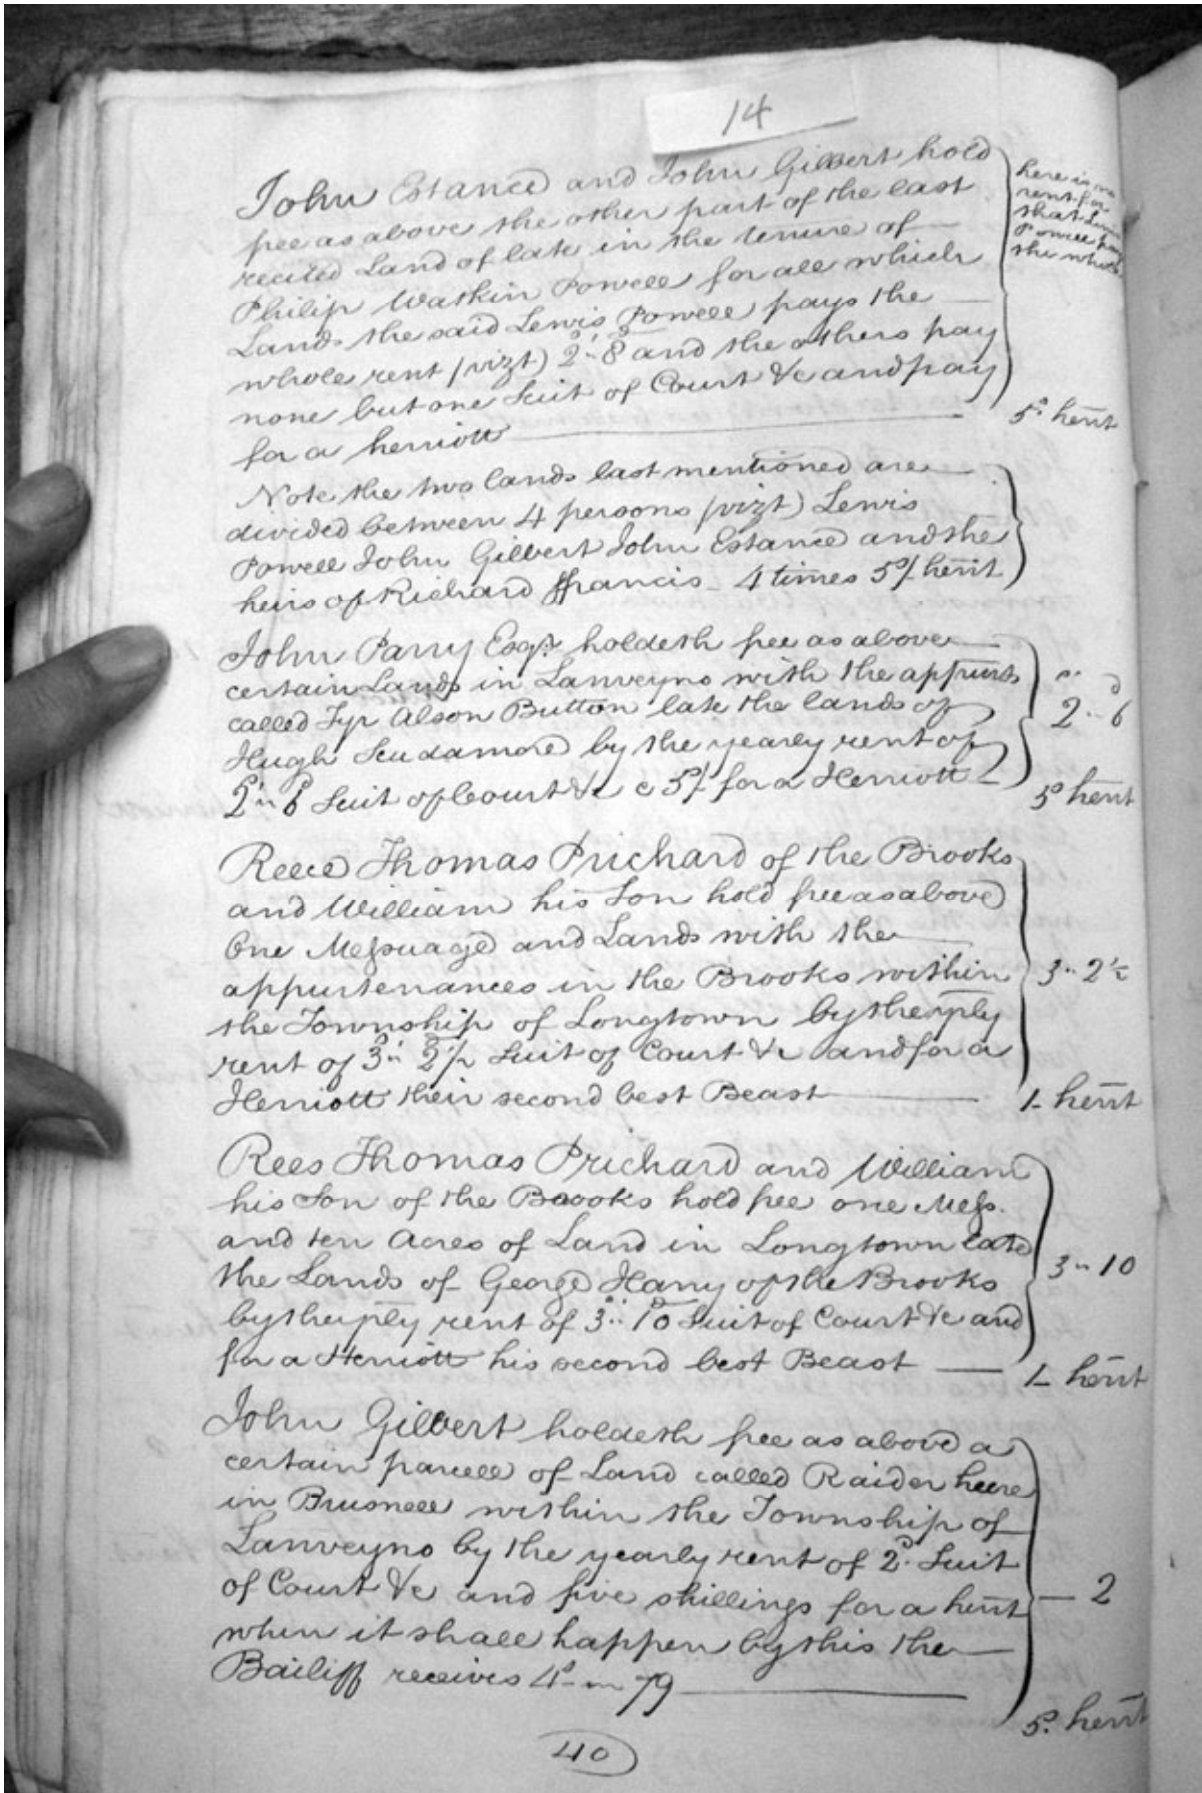 14
John Estance and John Gilbert hold
free as above the other part of the last
recited Land of late in the tenure of
Philip Watkin Powell for all which
Lands the said Lewis Powell pays the
whole rent (vizt) 2s 8d and the others pay
none but one Suit of Court &c and pay
for a herriott
here is no
rent for
that Lewis
Powell pays
the whole
5s. herit
Note the two lands last mentioned are
divided between 4 persons (vizt) Lewis
Powell John Gilbert John Estance and the
heirs of Richard ffrancis _ 4 times 5s/ herit
John Parry Esqr. holdeth free as above
certain Lands in Lanveyno with the appurts
called Tyr Alson Button late the lands of
Hugh Scudamore by the yearly rent of
2s " 6d Suit of Court &c 5s/ for a Herriott
s d
2 " 6
5s herit
Reece Thomas Prichard of the Brooks
and William his Son hold free as above
One Messuage and Lands with the
appurtenances in the Brooks within
the Township of Longtown by the yrly
rent of 3s " 2d ½ Suit of Court &c and for a
Herriott their second best Beast
3 " 2½
1_ herit
Rees Thomas Prichard and William
his Son of the Brooks hold free one Mess.
and ten Acres of Land in Longtown late
the Lands of George Harry of the Brooks
by the yrly rent of 3s " 10d Suit of Court &c and
for a Herriott his second best Beast
3 " 10
1_ herit
John Gilbert holdeth free as above a
certain parcell of Land called Raider heere
in Brusnell within the Township of
Lanveyno by the yearly rent of 2d. Suit
of Court &c and five shillings for a herit
when it shall happen by this the
Bailiff receives 4d in 79
— 2
5s. herit
40